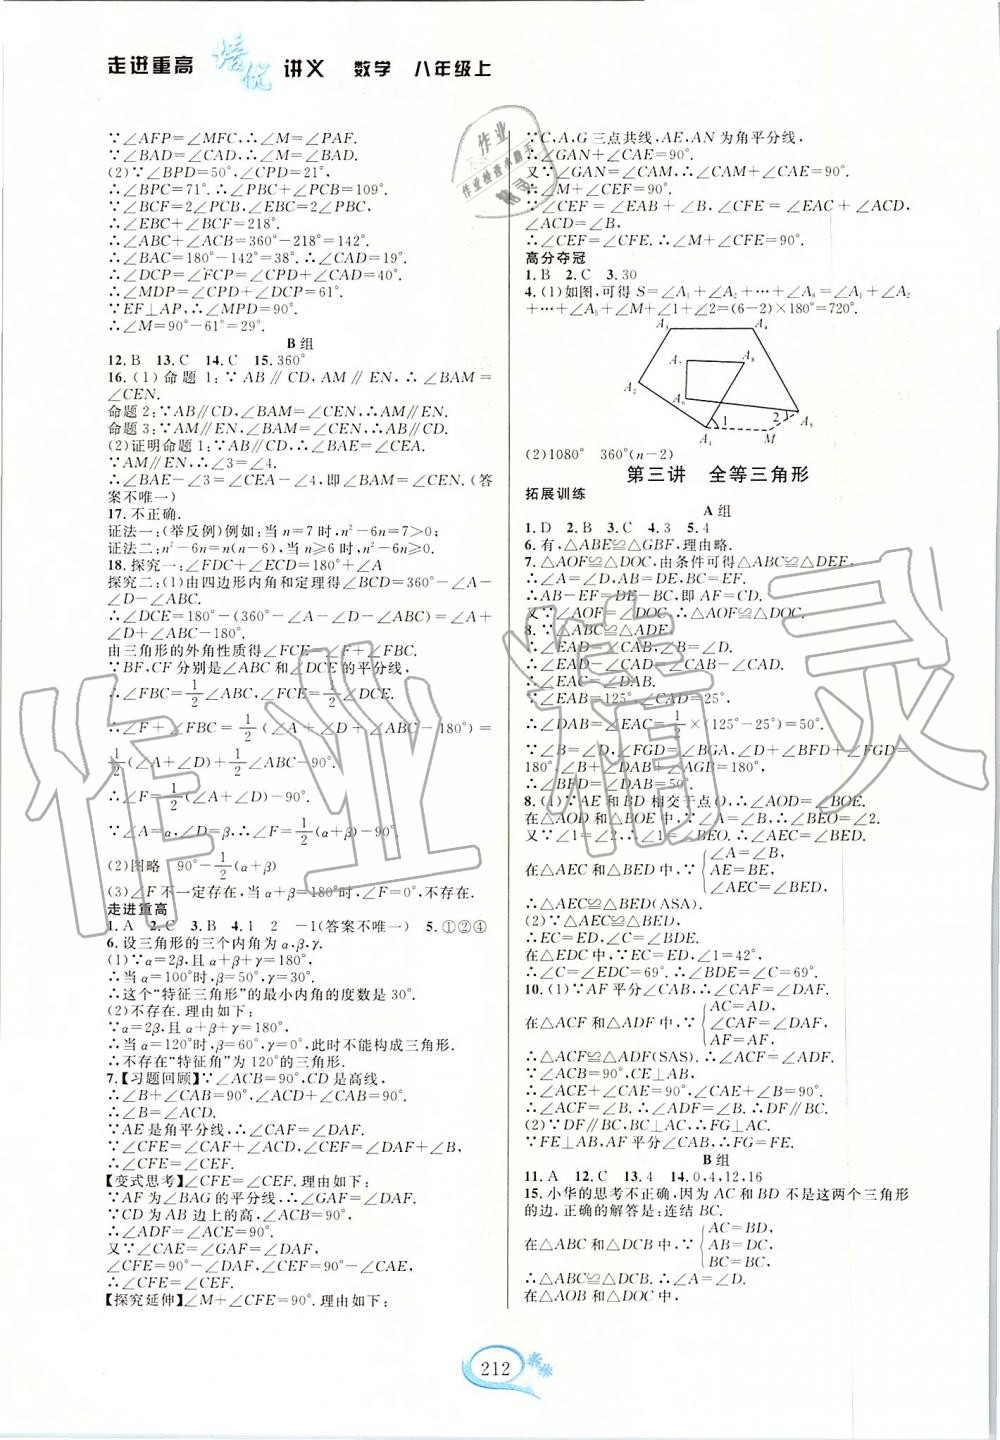 走进重高 培优 讲义 数学 八年级上
∵∠AFP=∠MFC,∴∠M=∠PAF.
∵∠BAD=∠CAD,∴∠M=∠BAD.
(2)∵∠BPD=50°,∠CPD=21°,
∴∠BPC=71°.∴∠PBC+∠PCB=109°.
∵∠BCF=2∠PCB,∠EBC=2∠PBC,
∴∠EBC+∠BCF=218°.
∴∠ABC+∠ACB=360°-218°=142°.
∴∠BAC=180°-142°=38°.∴∠CAD=19°.
∴∠DCP=∠FCP=∠CPD+∠CAD=40°.
∴∠MDP=∠CPD+∠DCP=61°.
∵EF⊥AP,∴∠MPD=90°.
∴∠M=90°-61°=29°.
B组
12.B 13.C 14.C 15.360°
16.(1)命题1:∵AB∥CD,AM∥EN,∴∠BAM=
∠CEN.
命题2:∵AB∥CD,∠BAM=∠CEN,∴AM∥EN.
命题3:∵AM∥EN,∠BAM=∠CEN,∴AB∥CD.
(2)证明命题1:∵AB∥CD,∴∠BAE=∠CEA.
∵AM∥EN,∴∠3=∠4.
∴∠BAE-∠3=∠CEA-∠4,即∠BAM=∠CEN.(答
案不唯一)
17.不正确.
证法一:(举反例)例如:当n=7时,n²-6n=7>0;
证法二:n²-6n=n(n-6),当n≥6时,n²-6n≥0.
18.探究一:∠FDC+∠ECD=180°+∠A
探究二:(1)由四边形内角和定理得∠BCD=360°-∠A
-∠D-∠ABC.
∴∠DCE=180°-(360°-∠A-∠D-∠ABC)=∠A+
∠D+∠ABC-180°.
由三角形的外角性质得∠FCE=∠F+∠FBC.
∵BF,CF分别是∠ABC和∠DCE的平分线,
∴∠FBC=1/2∠ABC,∠FCE=1/2∠DCE.
∴∠F+∠FBC=1/2(∠A+∠D+∠ABC-180°)=
1/2(∠A+∠D)+1/2∠ABC-90°.
∴∠F=1/2(∠A+∠D)-90°.
∵∠A=α,∠D=β,∴∠F=1/2(α+β)-90°.
(2)图略 90°-1/2(α+β)
(3)∠F不一定存在,当α+β=180°时,∠F=0°,不存在.
走进重高
1.A 2.C 3.B 4.1 2 -1(答案不唯一) 5.①②④
6.设三角形的三个内角为α,β,γ.
(1)∵α=2β,且α+β+γ=180°,
∴当α=100°时,β=50°,γ=30°.
∴这个“特征三角形”的最小内角的度数是30°.
(2)不存在.理由如下:
∵α=2β,且α+β+γ=180°,
∴当α=120°时,β=60°,γ=0°,此时不能构成三角形.
∴不存在“特征角”为120°的三角形.
7.【习题回顾】∵∠ACB=90°,CD是高线,
∴∠B+∠CAB=90°,∠ACD+∠CAB=90°.
∴∠B=∠ACD.
∵AE是角平分线,∴∠CAF=∠DAF.
∵∠CFE=∠CAF+∠ACD,∠CEF=∠DAF+∠B,
∴∠CFE=∠CEF.
【变式思考】∠CFE=∠CEF.理由如下:
∵AF为∠BAG的平分线,∴∠GAF=∠DAF.
∵CD为AB边上的高,∠ACB=90°,
∴∠ADF=∠ACE=90°.
又∵∠CAE=∠GAF=∠DAF,
∠CFE=90°-∠DAF,∠CEF=90°-∠CAE,
∴∠CFE=∠CEF.
【探究延伸】∠M+∠CFE=90°.理由如下:
∵C,A,G三点共线,AE,AN为角平分线,
∴∠GAN+∠CAE=90°.
又∵∠GAN=∠CAM,∴∠CAM+∠CAE=90°.
∴∠M+∠CEF=90°.
∵∠CEF=∠EAB+∠B,∠CFE=∠EAC+∠ACD,
∠ACD=∠B,
∴∠CEF=∠CFE.∴∠M+∠CFE=90°.
高分夺冠
1.B 2.C 3.30
4.(1)如图,可得S=∠A₁+∠A₂+…+∠A₈=∠A₁+∠A₂
+…+∠A₅+∠M+∠1+∠2=(6-2)×180°=720°.
A₃ A₄
A₇ A₈
A₂
A₆
1 2 A₅
A₁ M
(2)1080° 360°(n-2)
第三讲 全等三角形
拓展训练
A组
1.D 2.B 3.C 4.3 5.4
6.有,△ABE≌△GBF,理由略.
7.△AOF≌△DOC,由条件可得△ABC≌△DEF,
∴∠A=∠D,AB=DE,BC=EF.
∴AB-EF=DE-BC,即AF=DC.
又∵∠AOF=∠DOC,∴△AOF≌△DOC.
8.∵△ABC≌△ADE,
∴∠EAD=∠CAB,∠B=∠D.
∴∠EAD-∠CAD=∠CAB-∠CAD.
∴∠EAC=∠DAB.
∵∠EAB=125°,∠CAD=25°,
∴∠DAB=∠EAC=1/2×(125°-25°)=50°.
∵∠B=∠D,∠FGD=∠BGA,∠D+∠BFD+∠FGD=
180°,∠B+∠DAB+∠AGB=180°,
∴∠BFD=∠DAB=50°.
8.(1)∵AE和BD相交于点O,∴∠AOD=∠BOE.
在△AOD和△BOE中,∵∠A=∠B,∴∠BEO=∠2.
又∵∠1=∠2,∴∠1=∠BEO.∴∠AEC=∠BED.
在△AEC和△BED中,∵{∠A=∠B,
AE=BE,
∠AEC=∠BED,
∴△AEC≌△BED(ASA).
(2)∵△AEC≌△BED,
∴EC=ED,∠C=∠BDE.
在△EDC中,∵EC=ED,∠1=42°,
∴∠C=∠EDC=69°.∴∠BDE=∠C=69°.
10.(1)∵AF平分∠CAB,∴∠CAF=∠DAF.
在△ACF和△ADF中,∵{AC=AD,
∠CAF=∠DAF,
AF=AF,
∴△ACF≌△ADF(SAS).∴∠ACF=∠ADF.
∵∠ACB=90°,CE⊥AB,
∴∠ACE+∠CAE=90°,∠CAE+∠B=90°.
∴∠ACF=∠B.∴∠ADF=∠B.∴DF∥BC.
(2)∵DF∥BC,BC⊥AC,∴FG⊥AC.
∵FE⊥AB,AF平分∠CAB,∴FG=FE.
B组
11.A 12.C 13.4 14.0,4,12,16
15.小华的思考不正确,因为AC和BD不是这两个三角形
的边.正确的解答是:连结BC.
在△ABC和△DCB中,∵{AC=BD,
AB=DC,
BC=BC,
∴△ABC≌△DCB.∴∠A=∠D.
在△AOB和△DOC中,
212
作业精灵